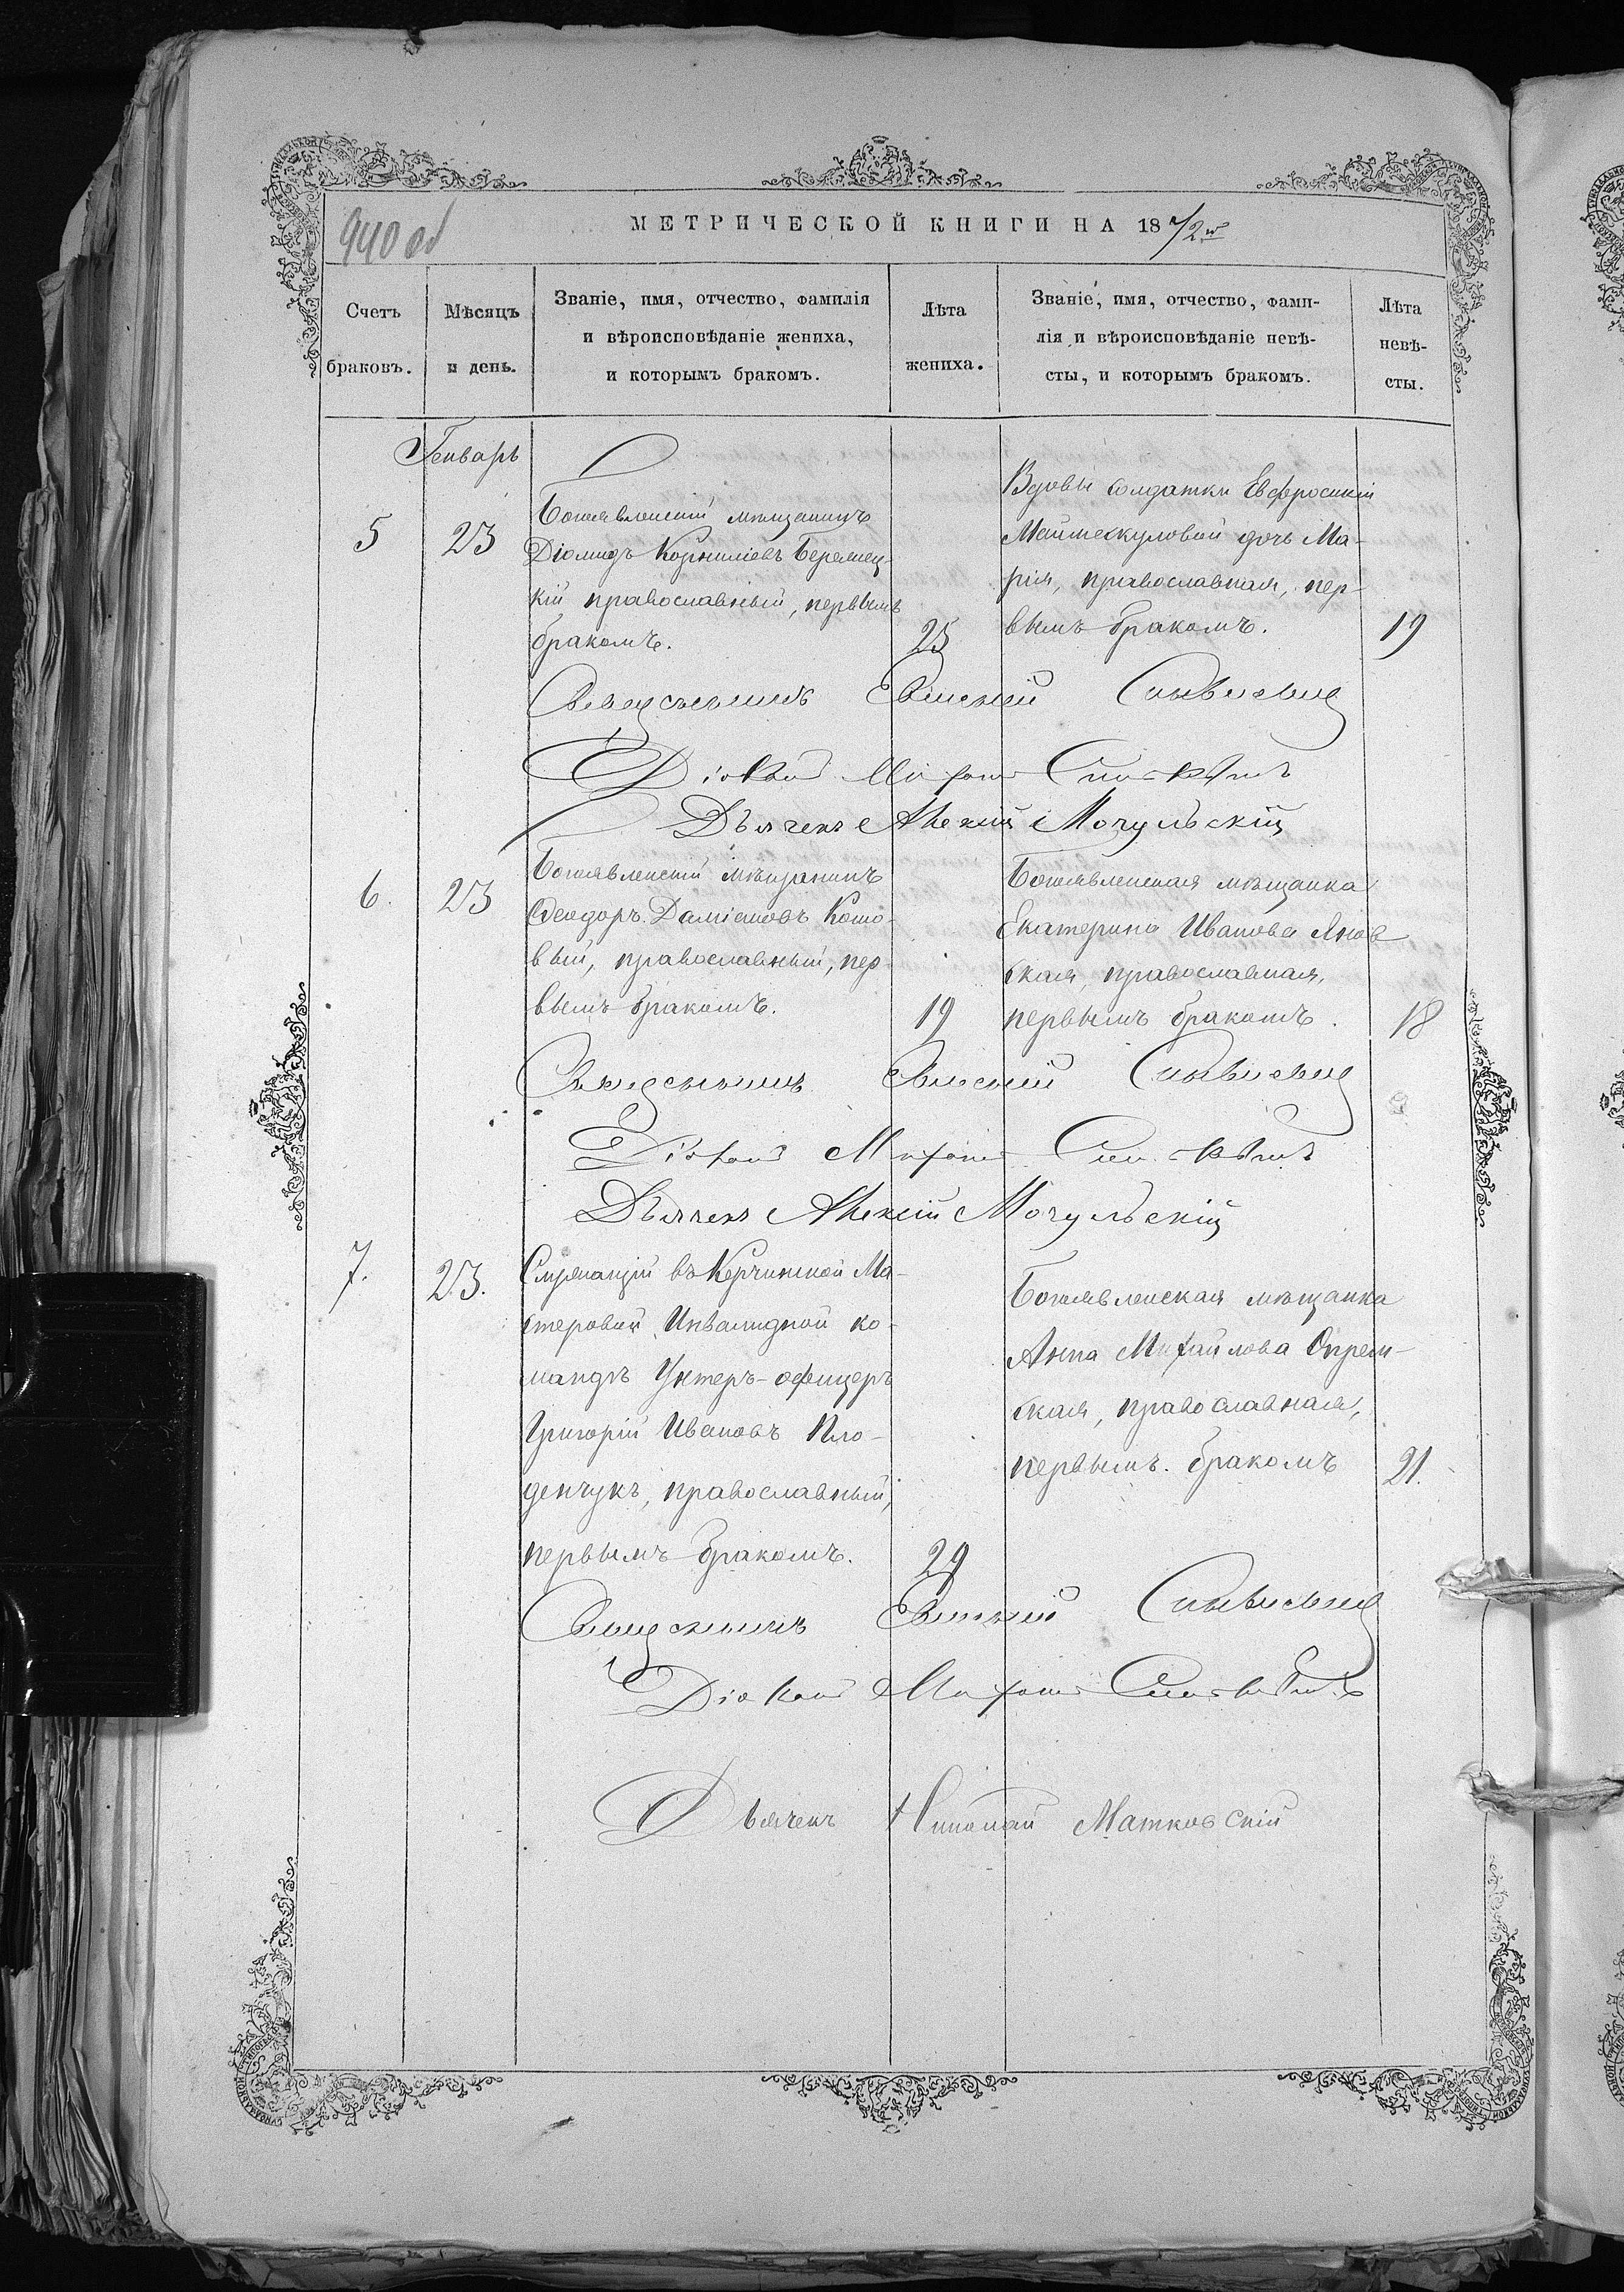 940 об
МЕТРИЧЕСКОЙ КНИГИ НА 1872й
Счетъ
браковъ.
Мѣсяцъ
и день.
Званіе, имя, отчество, фамилія
и вѣроисповѣданіе жениха,
и которымъ бракомъ.
Лѣта
жениха.
Званіе, имя, отчество, фами-
лія и вѣроисповѣданіе невѣ-
сты, и которымъ бракомъ.
Лѣта
невѣ-
сты.
Генварь
5
23
Богоявленскій мѣщанинъ
Діомидъ Корниліевъ
кій православный, первымъ
бракомъ.
25
Вдовы солдатки Евфросиніи
Маймескуловой дочь Ма-
рія, православная, пер-
вымъ бракомъ.
19
Священникъ Евгеній
Діаконъ
Дьячекъ Алексій Мочульскій
6.
23
Богоявленскій мѣщанинъ
Феодоръ Даміановъ Кошо-
вый, православный, пер-
вымъ бракомъ.
19
Богоявленская мѣщанка
Екатерина Иванова Янов
ская, православная,
первымъ бракомъ.
18
Священникъ Евгеній
Діаконъ
Дьячекъ Алексій Мочульскій
7.
23.
Служащій въ Керчинской Ма-
стеровой Инвалидной ко-
мандѣ Унтеръ-офицеръ
Григорій Ивановъ Пло-
денчукъ, православный,
первымъ бракомъ.
29
Богоявленская мѣщанка
Анна Михайлова
ская, православная,
первымъ бракомъ
21.
Священникъ Евгеній
Діаконъ
Дьячекъ Николай Матковскій